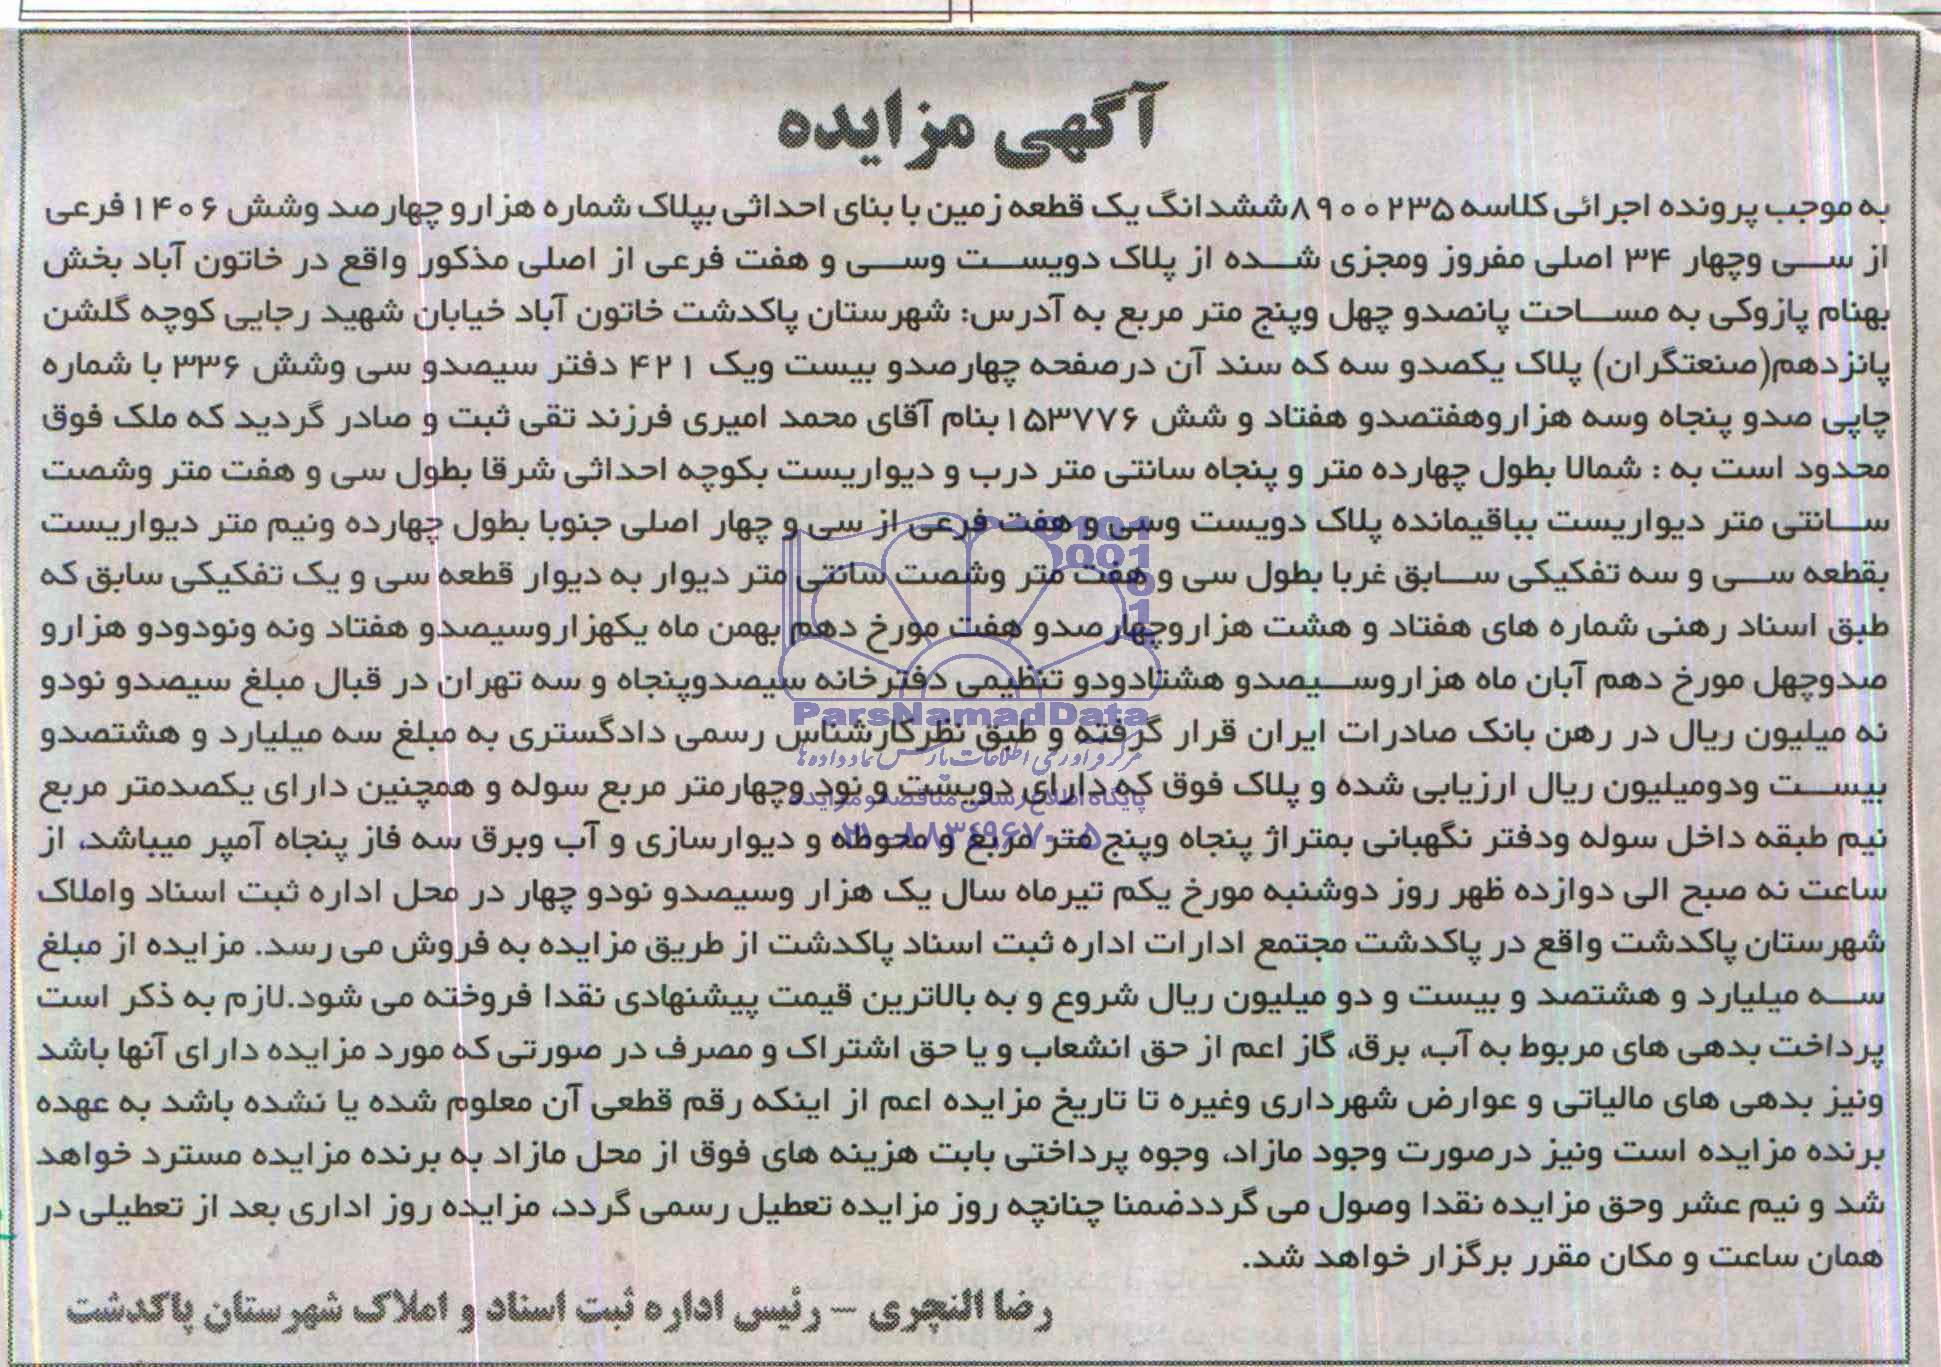 آگهی مزایده
به موجب پرونده اجرائی کلاسه ۸۹۰۰۲۳۵ ششدانگ یک قطعه زمین با بنای احداثی بپلاک شماره هزارو چهارصد وشش ۱۴۰۶ فرعی
از سی وچهار ۳۴ اصلی مفروز ومجزی شده از پلاک دویست وسی و هفت فرعی از اصلی مذکور واقع در خاتون آباد بخش
بهنام پازوکی به مساحت پانصدو چهل وپنج متر مربع به آدرس: شهرستان پاکدشت خاتون آباد خیابان شهید رجایی کوچه گلشن
پانزدهم(صنعتگران) پلاک یکصدو سه که سند آن درصفحه چهارصدو بیست ویک ۴۲۱ دفتر سیصدو سی وشش ۳۳۶ با شماره
چاپی صدو پنجاه وسه هزاروهفتصدو هفتاد و شش ۱۵۳۷۷۶ بنام آقای محمد امیری فرزند تقی ثبت و صادر گردید که ملک فوق
محدود است به : شمالا بطول چهارده متر و پنجاه سانتی متر درب و دیواریست بکوچه احداثی شرقا بطول سی و هفت متر وشصت
سانتی متر دیواریست بباقیمانده پلاک دویست وسی و هفت فرعی از سی و چهار اصلی جنوبا بطول چهارده ونیم متر دیواریست
بقطعه سی و سه تفکیکی سابق غربا بطول سی و هفت متر وشصت سانتی متر دیوار به دیوار قطعه سی و یک تفکیکی سابق که
طبق اسناد رهنی شماره های هفتاد و هشت هزاروچهارصدو هفت مورخ دهم بهمن ماه یکهزاروسیصدو هفتاد ونه ونودودو هزارو
صدوچهل مورخ دهم آبان ماه هزاروسیصدو هشتادودو تنظیمی دفترخانه سیصدوپنجاه و سه تهران در قبال مبلغ سیصدو نودو
ParsNamadData
نه میلیون ریال در رهن بانک صادرات ایران قرار گرفته و طبق نظرکارشناس رسمی دادگستری به مبلغ سه میلیارد و هشتصدو
مرکز فرآوری اطلاعات پارس نماد داده ها
بیست ودومیلیون ریال ارزیابی شده و پلاک فوق که دارای دویست و نود وچهارمتر مربع سوله و همچنین دارای یکصدمتر مربع
پایگاه اطلاع رسانی مناقصه و مزایده
نیم طبقه داخل سوله ودفتر نگهبانی بمتراژ پنجاه وپنج متر مربع و محوطه و دیوارسازی و آب وبرق سه فاز پنجاه آمپر میباشد، از
۰۲۱-۸۸۳۴۹۶۷۰-۵
ساعت نه صبح الی دوازده ظهر روز دوشنبه مورخ یکم تیرماه سال یک هزار وسیصدو نودو چهار در محل اداره ثبت اسناد واملاک
شهرستان پاکدشت واقع در پاکدشت مجتمع ادارات اداره ثبت اسناد پاکدشت از طریق مزایده به فروش می رسد. مزایده از مبلغ
سه میلیارد و هشتصد و بیست و دو میلیون ریال شروع و به بالاترین قیمت پیشنهادی نقدا فروخته می شود.لازم به ذکر است
پرداخت بدهی های مربوط به آب، برق، گاز اعم از حق انشعاب و یا حق اشتراک و مصرف در صورتی که مورد مزایده دارای آنها باشد
ونیز بدهی های مالیاتی و عوارض شهرداری وغیره تا تاریخ مزایده اعم از اینکه رقم قطعی آن معلوم شده یا نشده باشد به عهده
برنده مزایده است ونیز درصورت وجود مازاد، وجوه پرداختی بابت هزینه های فوق از محل مازاد به برنده مزایده مسترد خواهد
شد و نیم عشر وحق مزایده نقدا وصول می گرددضمنا چنانچه روز مزایده تعطیل رسمی گردد، مزایده روز اداری بعد از تعطیلی در
همان ساعت و مکان مقرر برگزار خواهد شد.
رضا النچری – رئیس اداره ثبت اسناد و املاک شهرستان پاکدشت